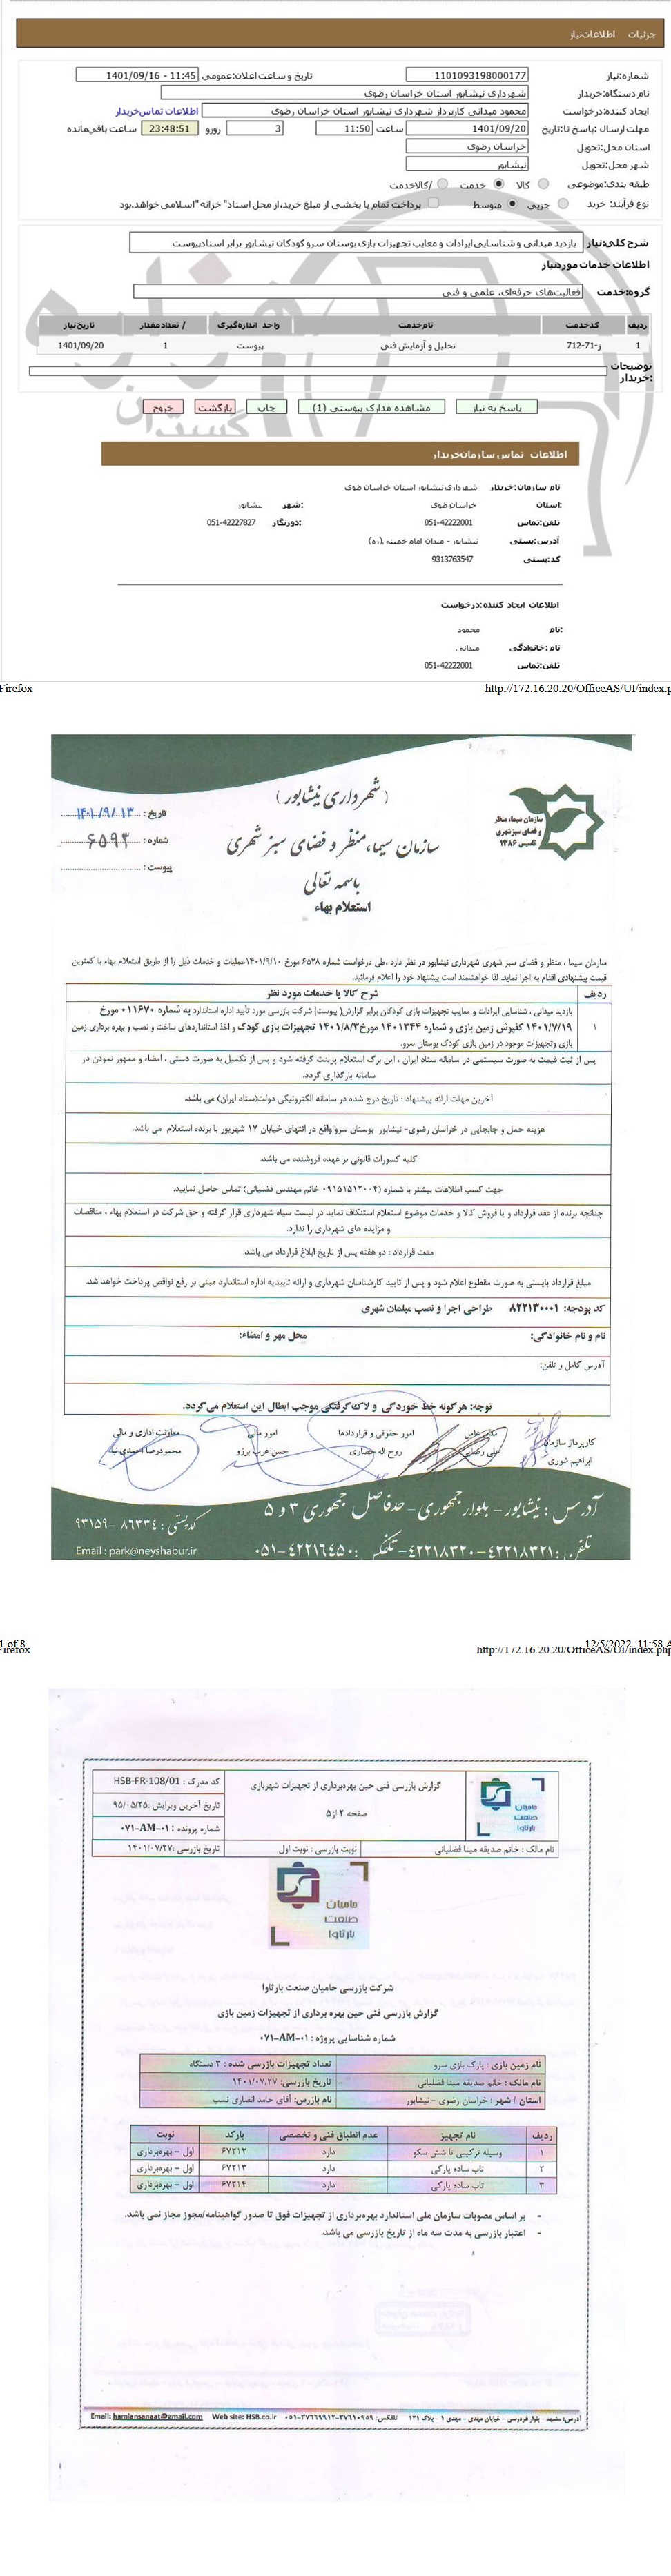 جزئیات اطلاعات نیاز
شماره نیاز: 1101093198000177
تاریخ و ساعت اعلان عمومی: 1401/09/16 - 11:45
نام دستگاه خریدار: شهرداری نیشابور استان خراسان رضوی
ایجاد کننده درخواست: محمود میدانی کارپرداز شهرداری نیشابور استان خراسان رضوی
اطلاعات تماس خریدار
مهلت ارسال پاسخ تا: تاریخ 1401/09/20 ساعت 11:50 3 روزو 23:48:51 ساعت باقی‌مانده
استان محل تحویل: خراسان رضوی
شهر محل تحویل: نیشابور
طبقه بندی موضوعی: کالا خدمت کالا/خدمت
نوع فرآیند خرید: جزیی متوسط پرداخت تمام یا بخشی از مبلغ خرید،از محل اسناد "خزانه اسلامی" خواهد بود.
شرح کلی نیاز: بازدید میدانی و شناسایی ایرادات و معایب تجهیزات بازی بوستان سرو کودکان نیشابور برابر اسنادپیوست
اطلاعات خدمات مورد نیاز
گروه خدمت: فعالیت‌های حرفه‌ای، علمی و فنی
ردیف کد خدمت نام خدمت واحد اندازه‌گیری تعداد/مقدار تاریخ نیاز
1 ز-71-712 تحلیل و آزمایش فنی پیوست 1 1401/09/20
توضیحات خریدار:
پاسخ به نیاز مشاهده مدارک پیوستی (1) چاپ بازگشت خروج
اطلاعات تماس سازمان خریدار
نام سازمان خریدار: شهرداری نیشابور استان خراسان رضوی
استان: خراسان رضوی شهر: نیشابور
تلفن تماس: 051-42222001 دورنگار: 051-42227827
آدرس پستی: نیشابور - میدان امام خمینی (ره)
کد پستی: 9313763547
اطلاعات ایجاد کننده درخواست:
نام: محمود
نام خانوادگی: میدانی
تلفن تماس: 051-42222001
Firefox http://172.16.20.20/OfficeAS/UI/index.p
(شهرداری نیشابور)
سازمان سیما، منظر و فضای سبز شهری
باسمه تعالی
استعلام بهاء
سازمان سیما، منظر و فضای سبز شهری تاسیس ۱۳۸۶
تاریخ: ۱۴۰۱/۹/۱۳
شماره: ۶۵۹۴
پیوست:
سازمان سیما ، منظر و فضای سبز شهری شهرداری نیشابور در نظر دارد ،طی درخواست شماره ۶۵۲۸ مورخ ۱۴۰۱/۹/۱۰عملیات و خدمات ذیل را از طریق استعلام بهاء با کمترین
قیمت پیشنهادی اقدام به اجرا نماید. لذا خواهشمند است پیشنهاد خود را اعلام فرمائید.
ردیف شرح کالا یا خدمات مورد نظر
۱ بازدید میدانی ، شناسایی ایرادات و معایب تجهیزات بازی کودکان برابر گزارش( پیوست) شرکت بازرسی مورد تأیید اداره استاندارد به شماره ۰۱۱۶۷۰ مورخ
۱۴۰۱/۷/۱۹ کفپوش زمین بازی و شماره ۱۴۰۱۳۴۴ مورخ۱۴۰۱/۸/۳ تجهیزات بازی کودک و اخذ استانداردهای ساخت و نصب و بهره برداری زمین
بازی وتجهیزات موجود در زمین بازی کودک بوستان سرو.
پس از ثبت قیمت به صورت سیستمی در سامانه ستاد ایران ، این برگ استعلام پرینت گرفته شود و پس از تکمیل به صورت دستی ، امضاء و ممهور نمودن در
سامانه بارگذاری گردد.
آخرین مهلت ارائه پیشنهاد : تاریخ درج شده در سامانه الکترونیکی دولت(ستاد ایران) می باشد.
هزینه حمل و جابجایی در خراسان رضوی- نیشابور بوستان سرو واقع در انتهای خیابان ۱۷ شهریور با برنده استعلام می باشد.
کلیه کسورات قانونی بر عهده فروشنده می باشد.
جهت کسب اطلاعات بیشتر با شماره (۰۹۱۵۱۵۱۲۰۰۴ خانم مهندس فضلیانی) تماس حاصل نمایید.
چنانچه برنده از عقد قرارداد و یا فروش کالا و خدمات موضوع استعلام استنکاف نماید در لیست سیاه شهرداری قرار گرفته و حق شرکت در استعلام بهاء ، مناقصات
و مزایده های شهرداری را ندارد.
مدت قرارداد : دو هفته پس از تاریخ ابلاغ قرارداد می باشد.
مبلغ قرارداد بایستی به صورت مقطوع اعلام شود و پس از تایید کارشناسان شهرداری و ارائه تاییدیه اداره استاندارد مبنی بر رفع نواقص پرداخت خواهد شد.
کد بودجه: ۸۲۲۱۳۰۰۰۱ طراحی اجرا و نصب مبلمان شهری
نام و نام خانوادگی: محل مهر و امضاء:
آدرس کامل و تلفن:
توجه: هرگونه خط خوردگی و لاک گرفتگی موجب ابطال این استعلام می‌گردد.
کارپرداز سازمان مدیر عامل امور حقوقی و قراردادها امور مالی معاونت اداری و مالی
ابراهیم شوری علی رضایی روح اله حصاری حسن عرب برزو محمودرضا احمدی نیا
آدرس : نیشابور - بلوار جمهوری - حدفاصل جمهوری ۳ و ۵
کدپستی : ۸۶۳۳۴ - ۹۳۱۵۹
تلفن : ۴۲۲۱۸۳۲۱ - ۴۲۲۱۸۳۲۰ - تلفکس : ۴۲۲۱۶۴۵۰ - ۰۵۱
Email : park@neyshabur.ir
1 of 8 12/5/2022, 11:58 A
Firefox http://172.16.20.20/OfficeAS/UI/index.php
گزارش بازرسی فنی حین بهره‌برداری از تجهیزات شهربازی
صفحه ۲ از ۵
کد مدرک : HSB-FR-108/01
تاریخ آخرین ویرایش :۹۵/۰۵/۲۵
شماره پرونده : ۰۷۱-AM-۰۱
حامیان صنعت بارثاوا
نام مالک : خانم صدیقه مینا فضلیانی نوبت بازرسی : نوبت اول تاریخ بازرسی :۱۴۰۱/۰۷/۲۷
حامیان صنعت بارثاوا
شرکت بازرسی حامیان صنعت بارثاوا
گزارش بازرسی فنی حین بهره برداری از تجهیزات زمین بازی
شماره شناسایی پروژه : ۰۷۱-AM-۰۱
نام زمین بازی : پارک بازی سرو تعداد تجهیزات بازرسی شده : ۳ دستگاه
نام مالک : خانم صدیقه مینا فضلیانی تاریخ بازرسی: ۱۴۰۱/۰۷/۲۷
استان / شهر : خراسان رضوی - نیشابور نام بازرس: آقای حامد انصاری نسب
ردیف نام تجهیز عدم انطباق فنی و تخصصی بارکد نوبت
۱ وسیله ترکیبی تا شش سکو دارد ۶۷۲۱۲ اول - بهره‌برداری
۲ تاب ساده پارکی دارد ۶۷۲۱۳ اول - بهره‌برداری
۳ تاب ساده پارکی دارد ۶۷۲۱۴ اول - بهره‌برداری
- بر اساس مصوبات سازمان ملی استاندارد بهره‌برداری از تجهیزات فوق تا صدور گواهینامه/مجوز مجاز نمی باشد.
- اعتبار بازرسی به مدت سه ماه از تاریخ بازرسی می باشد.
آدرس: مشهد - بلوار فردوسی - خیابان مهدی - مهدی ۱ - پلاک ۱۳۱ تلفکس: ۳۷۶۱۰۹۰۹-۳۷۶۶۹۹۱۲-۰۵۱ Web site: HSB.co.ir Email: hamiansanaat@gmail.com